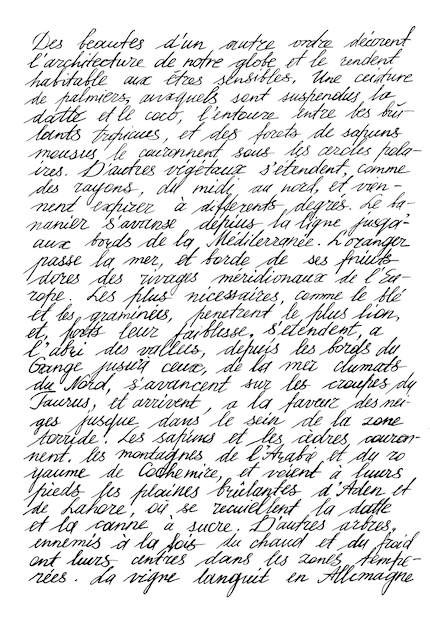 Des beautes d'un autre ordre décorent
l'architecture de notre globe et le rendent
habitable aux êtres sensibles. Une ceinture
de palmiers, auxquels sont suspendus la
datte et le coco, l'entoure entre les brû-
lants tropiques, et des forets de sapins
mousus le couronnent sous les cercles pola-
ires. D'autres végétaux s'étendent, comme
des rayons, du midi au nord, et vien-
nent expirer à differents degrés. Le ba-
nanier s'avanse depius la ligne jusqá'
aux bords de la Méditerranée. L'oranger
passe la mer, et borde de ses fruits
dores des rivages méridionaux de l'Eu-
rope. Les plus nécessaires, comme le blé
et les graminées, penetrent le plus lion,
et, forts leur faiblesse, s'etendent, a
l'abri des vallées, depuis les bords du
Gange jusqu'a ceux, de la mer climats
du Nord, s'avancent sur les croupes du
Taurus, et arrivent, a la faveur des nei-
ges jusque dans le sein de la zone
torride. Les sapins et les cedres couron-
nent les montagnes de l'Arabie et du ro
yaume de Cachemire, et voient à leurs
pieds les plaines brûlantes d'Aden et
de Lahore, où se recueillent la datte
et la canne à sucre. D'autres arbres,
ennemis à la fois du chaud et du froid
ont leurs centres dans les zones tempe-
rées. La vigne languit en Allemagne